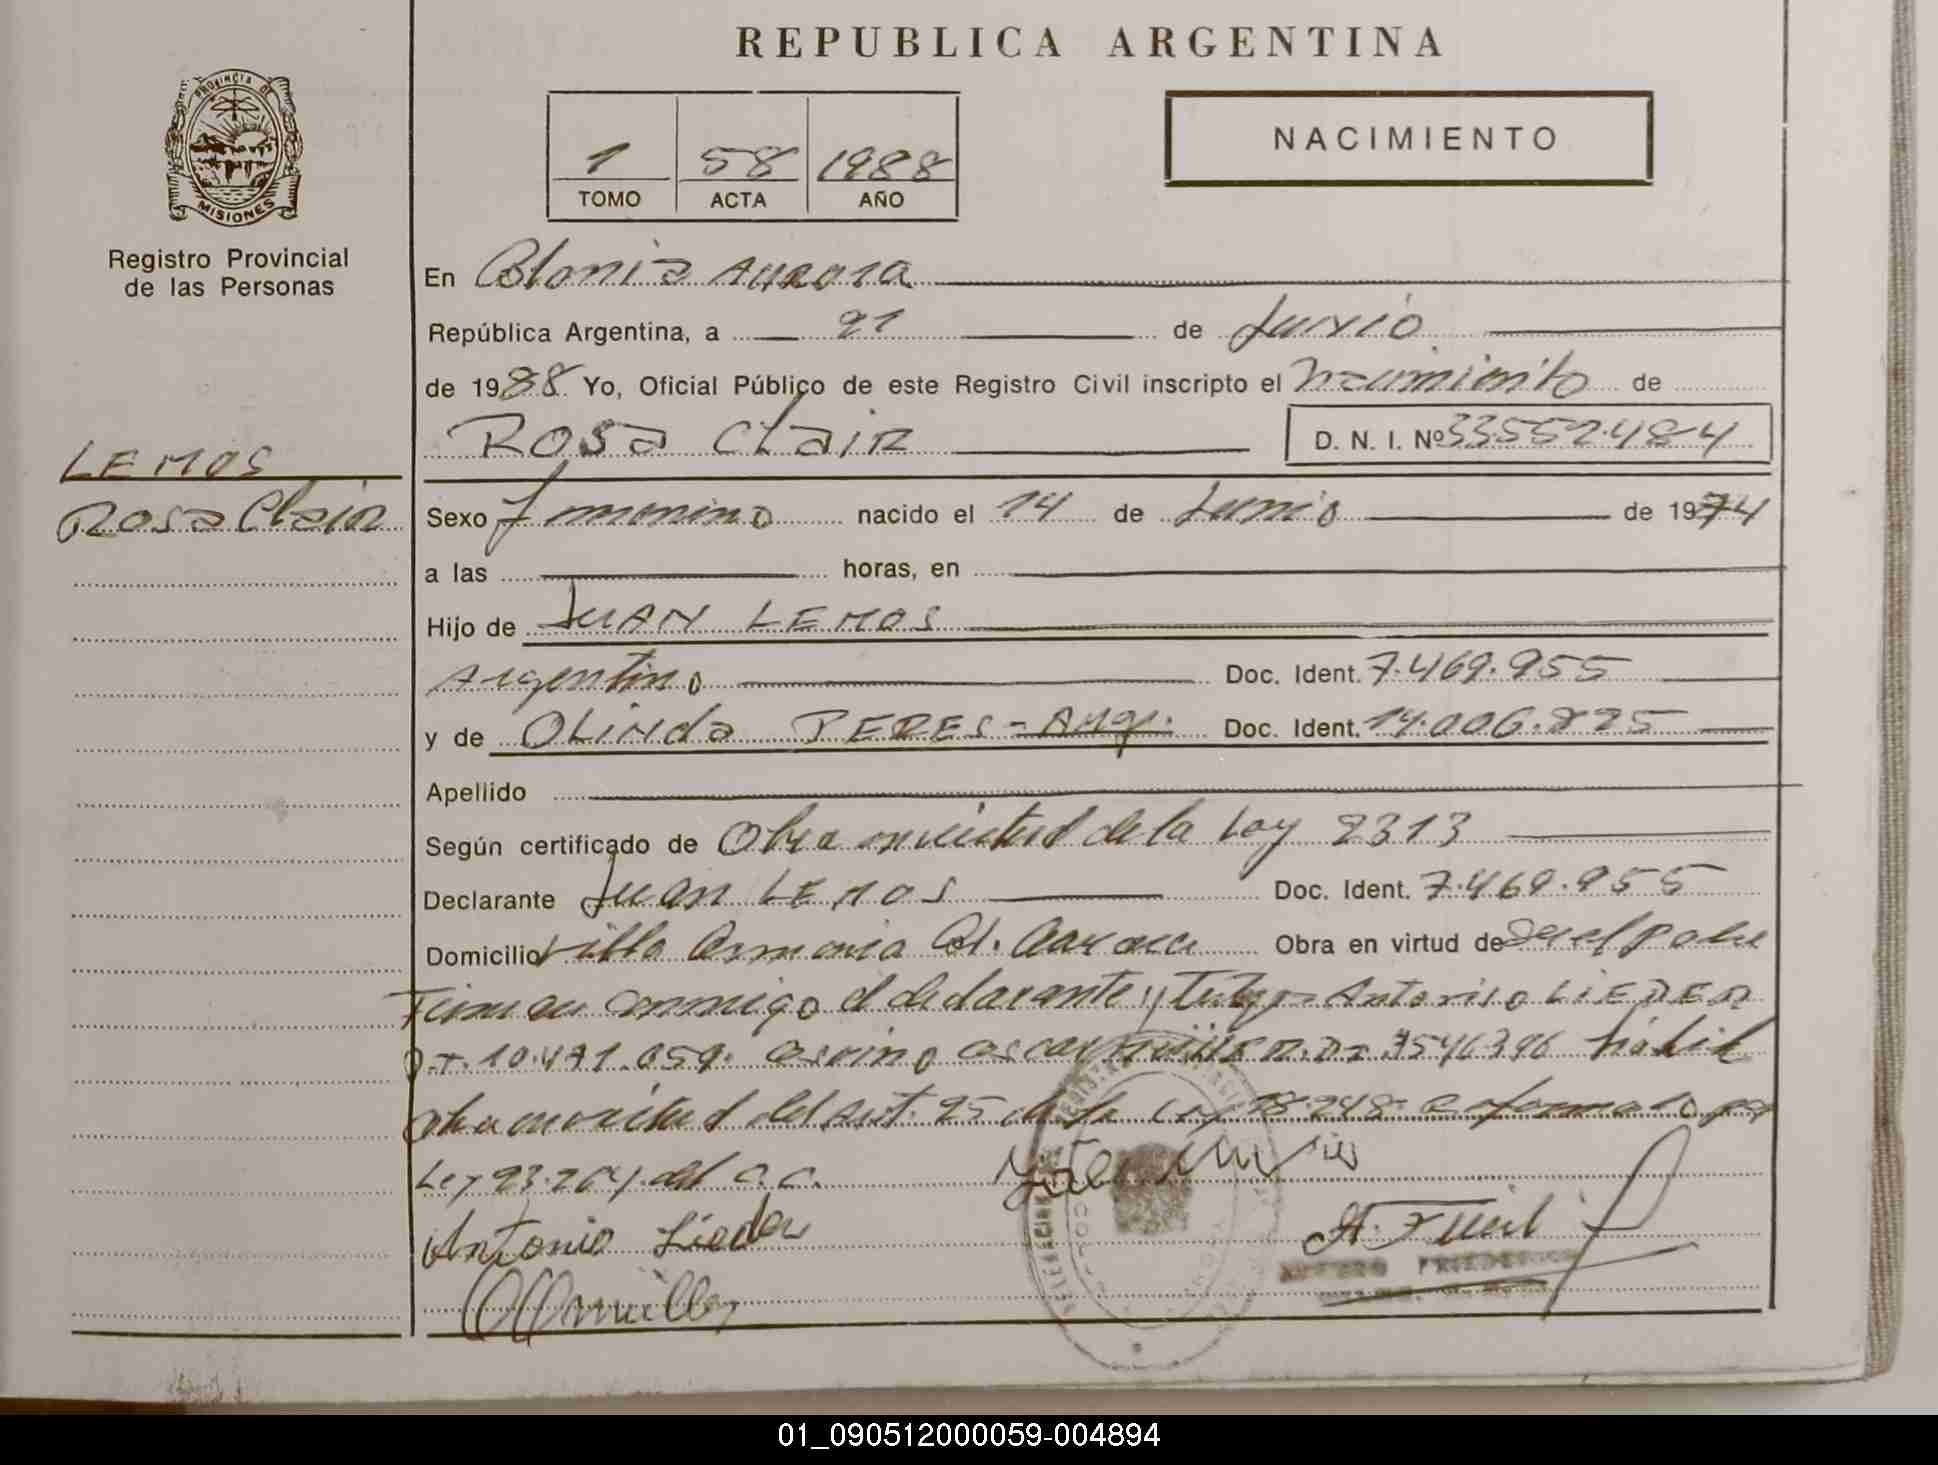 REPUBLICA ARGENTINA
PROVINCIA DE
MISIONES
Registro Provincial
de las Personas
1 58 1988
TOMO ACTA AÑO
NACIMIENTO
En Colonia Aurora
República Argentina, a 21 de Junio
de 1988 Yo, Oficial Público de este Registro Civil inscripto el Nacimiento de
Rosa Clair D. N. I. Nº 33552484
LEMOS
Rosa Clair
Sexo femenino nacido el 14 de Junio de 1974
a las horas, en
Hijo de JUAN LEMOS
Argentino Doc. Ident. 7.469.955
y de OLINda PERES - Arg. Doc. Ident. 14.006.825
Apellido
Según certificado de Obra en virtud de la Ley 2313
Declarante Juan LEMOS Doc. Ident. 7.469.955
Domicilio Villa Armonia Col. Aurora Obra en virtud de Ser el padre
Firman conmigo el declarante y Antonio LIEDER
10.471.059 7546396 hábil
Obra en virtud del Art. 25 de la Ley 18248 por
Ley 23.264 del C.C.
Antonio Lieder
01_090512000059-004894